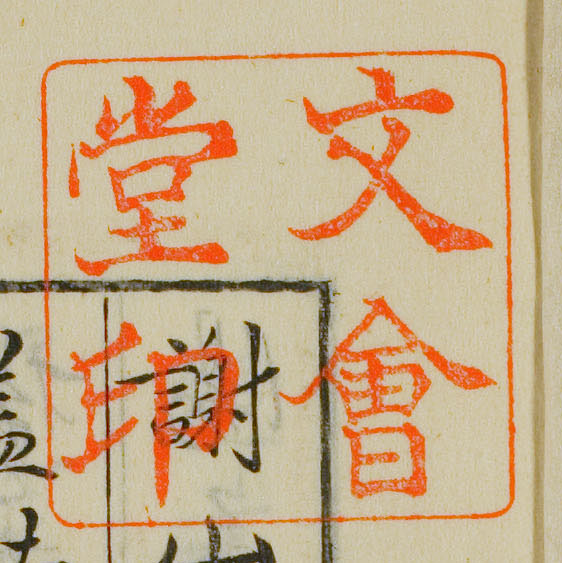 文會
堂印
謝